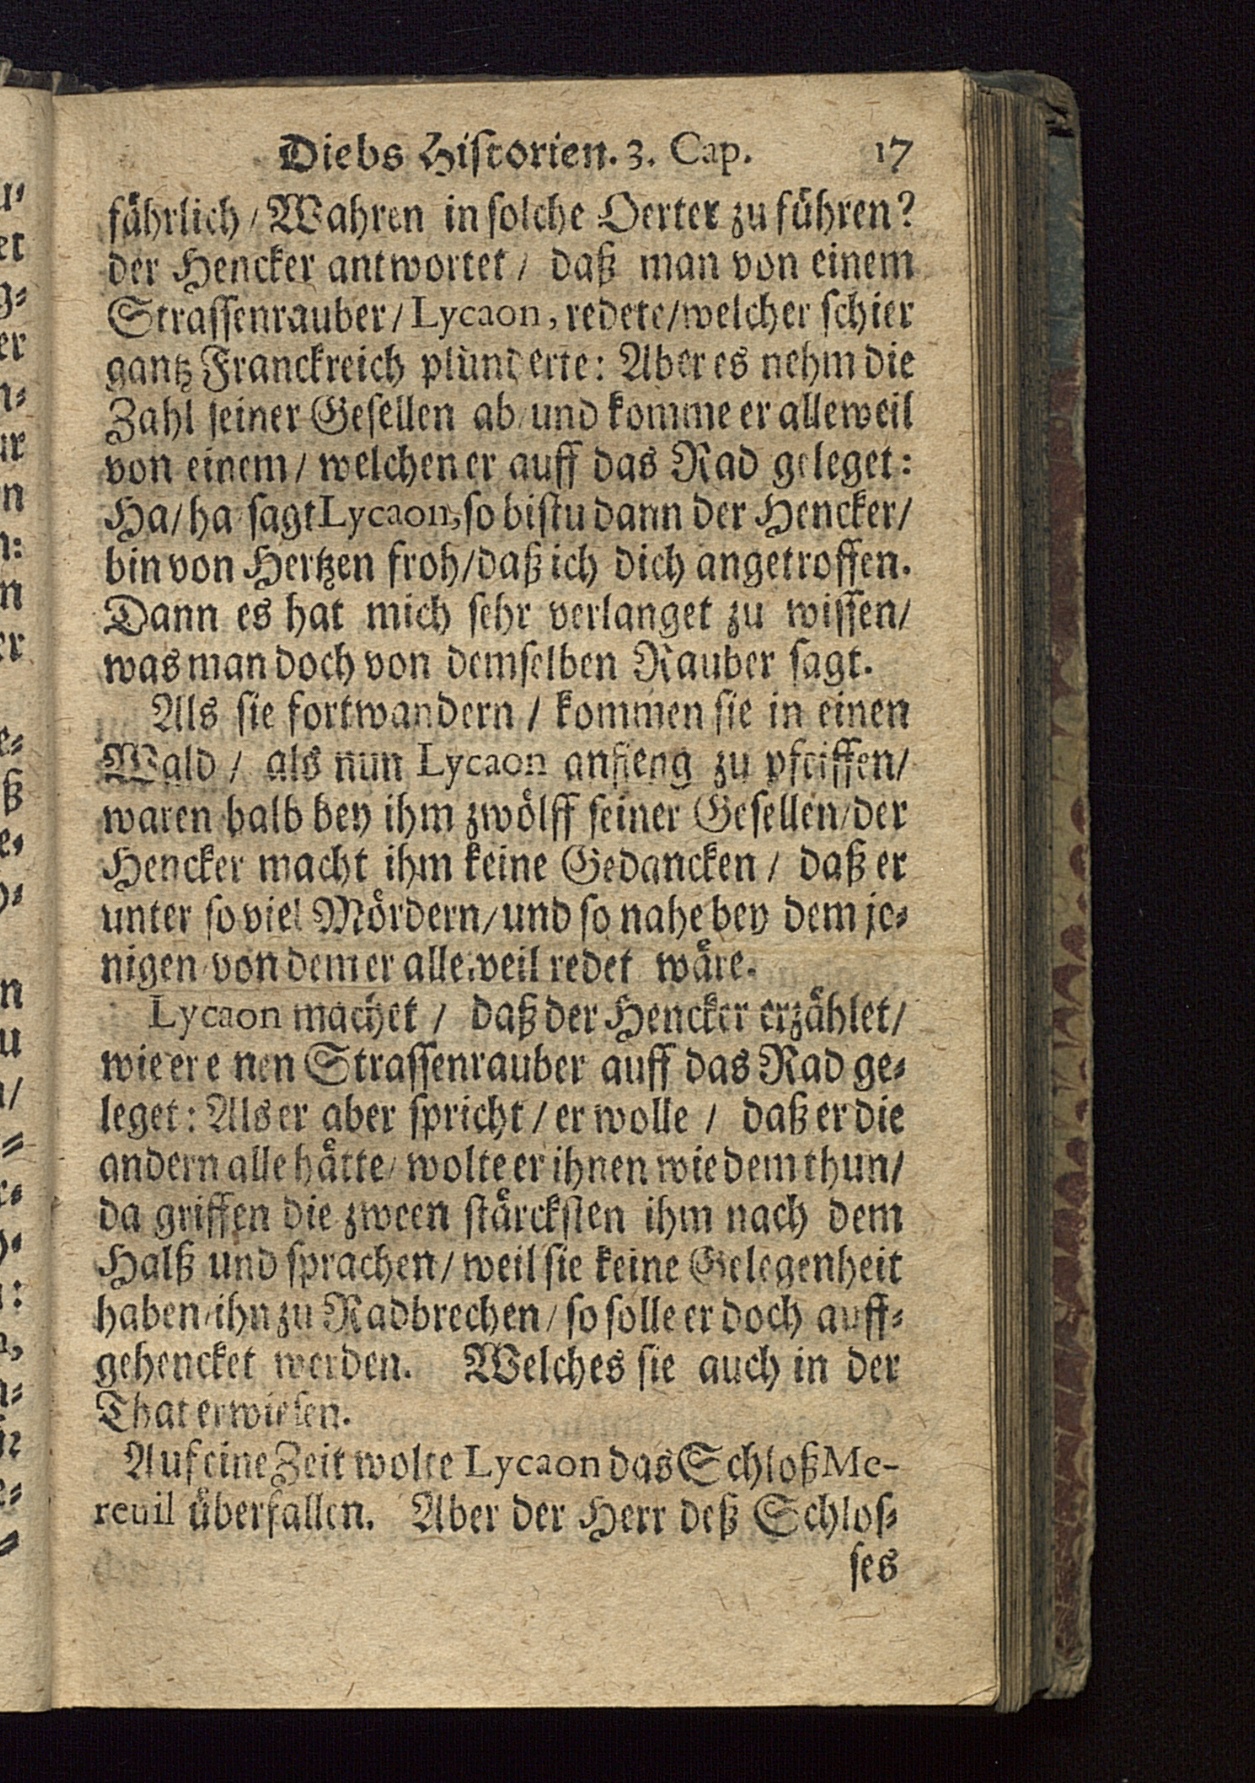 Diebs Historien. 3. Cap. 17
fährlich / Wahren in solche Oerter zu führen?
der Hencker antwortet / daß man von einem
Strassenrauber / Lycaon, redete / welcher schier
gantz Franckreich plünderte: Aber es nehm die
Zahl seiner Gesellen ab / und komme er alleweil
von einem / welchen er auff das Rad geleget:
Ha / ha sagt Lycaon, so bistu dann der Hencker /
bin von Hertzen froh / daß ich dich angetroffen.
Dann es hat mich sehr verlanget zu wissen /
was man doch von demselben Rauber sagt.
Als sie fortwandern / kommen sie in einen
Wald / als nun Lycaon anfieng zu pfeiffen /
waren halb bey ihm zwölff seiner Gesellen / der
Hencker macht ihm keine Gedancken / daß er
unter so viel Mördern / und so nahe bey dem je-
nigen von dem er alleweil redet wäre.
Lycaon machet / daß der Hencker erzählet /
wie er e nen Strassenrauber auff das Rad ge-
leget: Als er aber spricht / er wolle / daß er die
andern alle hätte / wolte er ihnen wie dem thun /
da griffen die zween stärcksten ihm nach dem
Halß und sprachen / weil sie keine Gelegenheit
haben / ihn zu Radbrechen / so solle er doch auff-
gehencket werden. Welches sie auch in der
That erwiesen.
Auf eine Zeit wolte Lycaon das Schloß Me-
reuil überfallen. Aber der Herr deß Schlos-
ses